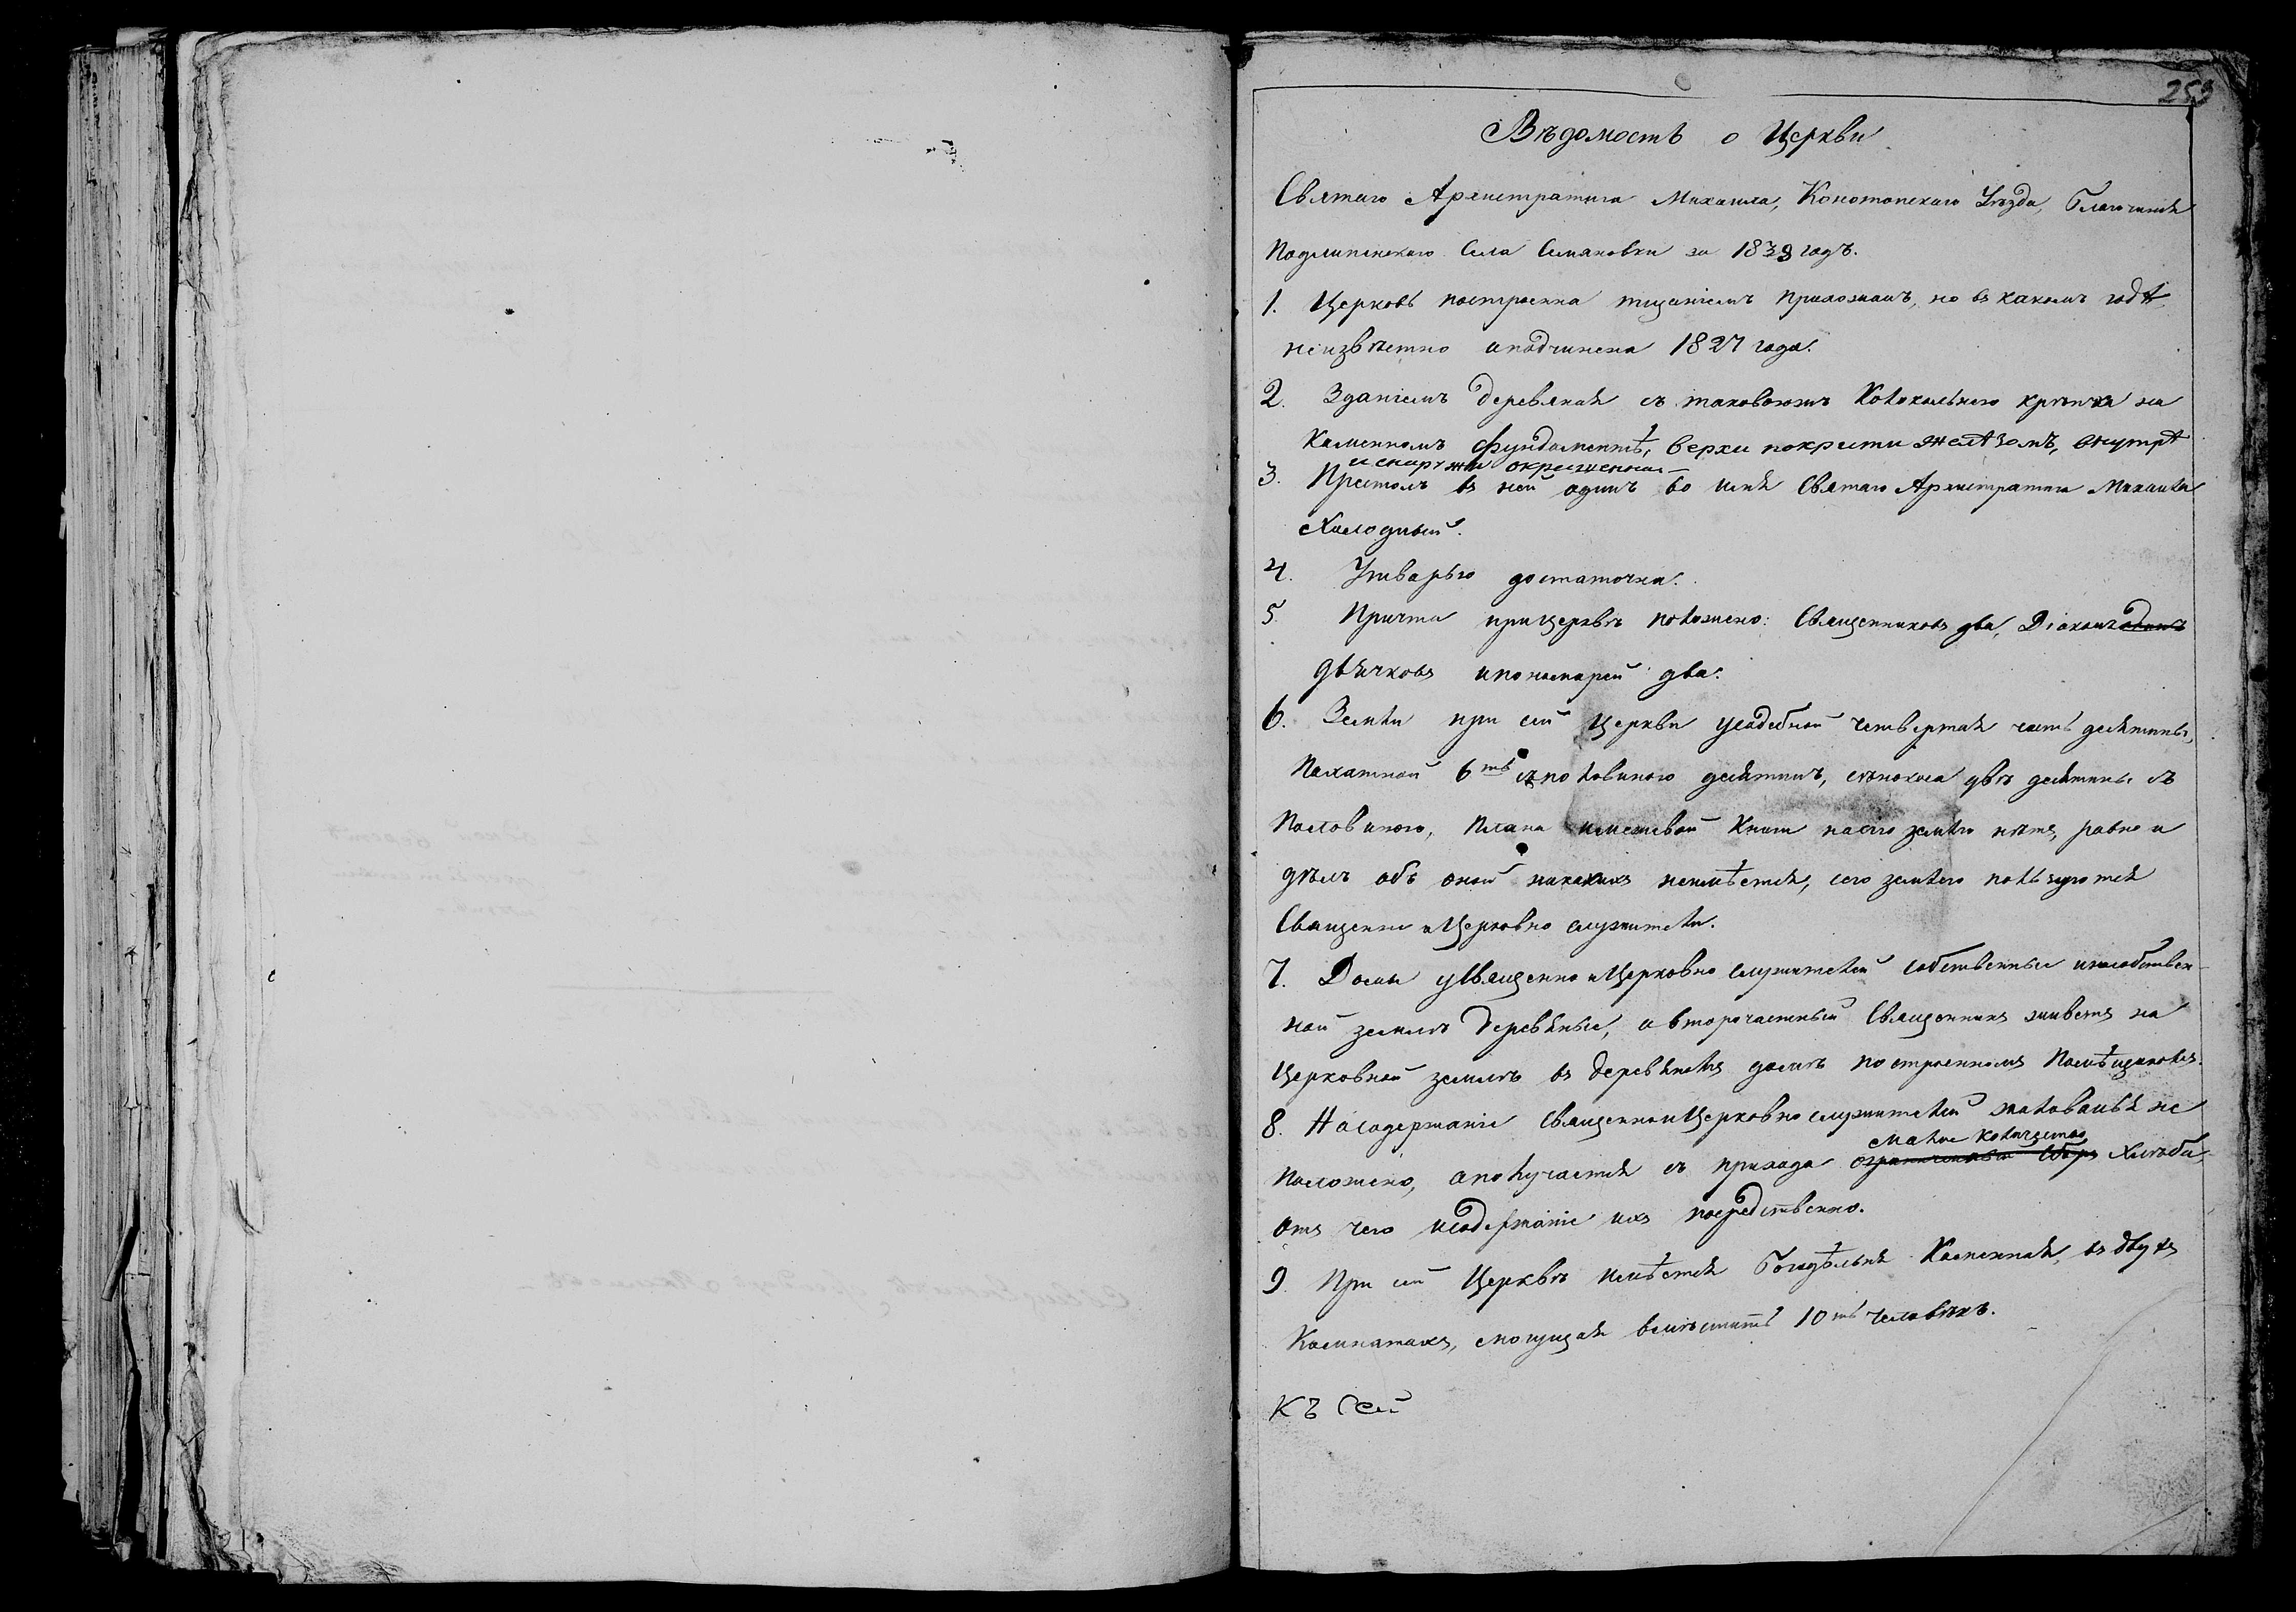 253
Вѣдомость о Церкви
Святаго Архистратига Михаила, Конотопскаго Уѣзда, Благочинія
Подлипенскаго Села Семяновки за 1839 годъ.
1. Церковь построенна тщаніемъ прихожанъ, но въ какомъ годѣ
неизвѣстно а подчинена 1827 года.
2. Зданіемъ деревяная съ таковоюжъ Колокольнею крѣпка на
Каменномъ фундаментѣ, верхи покрыты желѣзомъ, внутрѣ
и снаружи окрашенная
3. Престолъ въ ней одинъ во имя Святаго Архистратига Михаила
Холодный.
4. Утварью достаточна.
5. Причта при церквѣ положено: Священниковъ два, Діаконъ одинъ
дьячковъ и пономарей два.
6. Земли при сей церкви усадебной четвертая часть десятины,
Пахатной 6ть съ половиною десятинъ, сѣнокоса двѣ десятины съ
Половиною, Плана и межевой Книги на сію землю нѣтъ, равно и
дѣлъ объ оной никакихъ неимѣется, сею землею пользуются
Священно и Церковно служители.
7. Домы у Священно и Церковно служителей собственные и на собствен-
ной землѣ деревяные, а второчастный Священникъ живетъ на
Церковной землѣ въ деревяномъ домѣ построенномъ Помѣщикомъ.
8. На содержаніе Священно и Церковно служителей жалованья не
малое количество
Положено, а получается съ прихода ограниченный сборъ Хлѣба,
отъ чего и содержаніе ихъ посредственно.
9. При сей Церквѣ имѣется Богадѣльня Каменная, въ двухъ
Комнатахъ, могущая вмѣстить 10ть человѣкъ.
Къ Сей